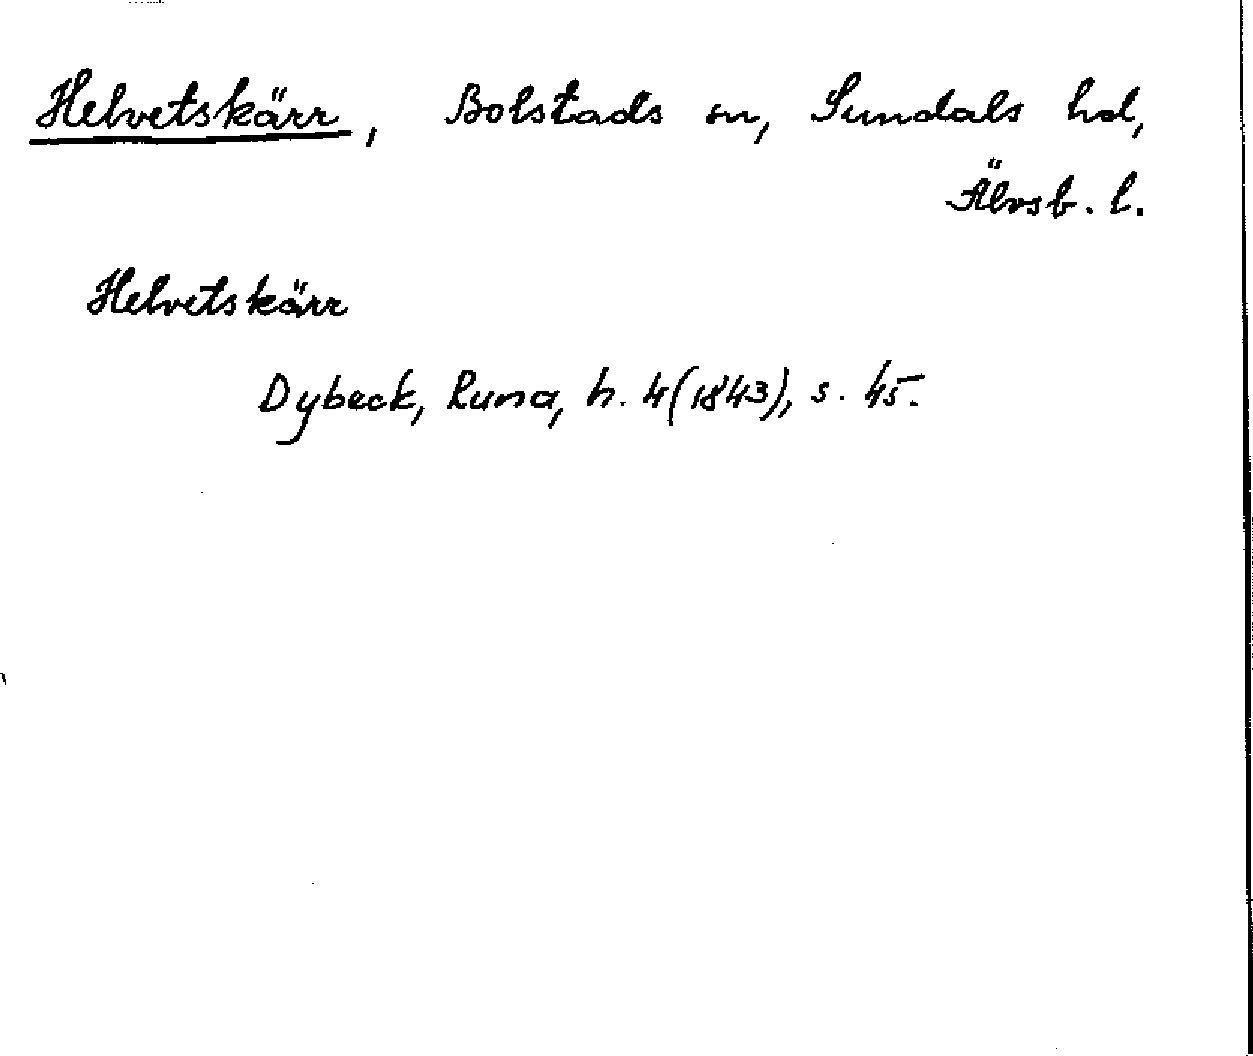 Helvetskärr, Bolstads sn, Sundals hd,
Älvsb. l.
Helvetskärr
Dybeck, Runa, h. 4 (1843), s. 45.